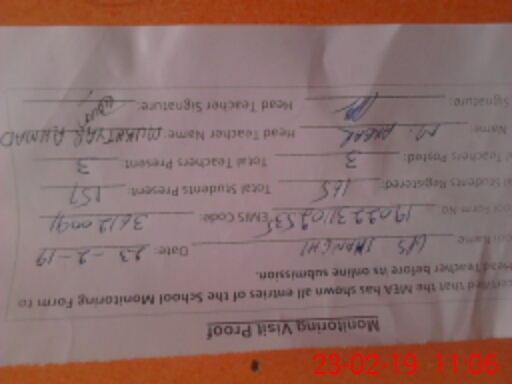 Monitoring Visit Proof
certified that the MEA has shown all entries of the School Monitoring Form to
Head Teacher before its online submission.
Name: GPS Date: 23-2-19
Form No EMIS Code:
Students Registered: 165 Total Students Present: 151
Teachers Posted: 3 Total Teachers Present: 3
Name: M. AKBAR Head Teacher Name: MUKHTYAR AHMAD
Signature: Head Teacher Signature:
23-02-19 11:06